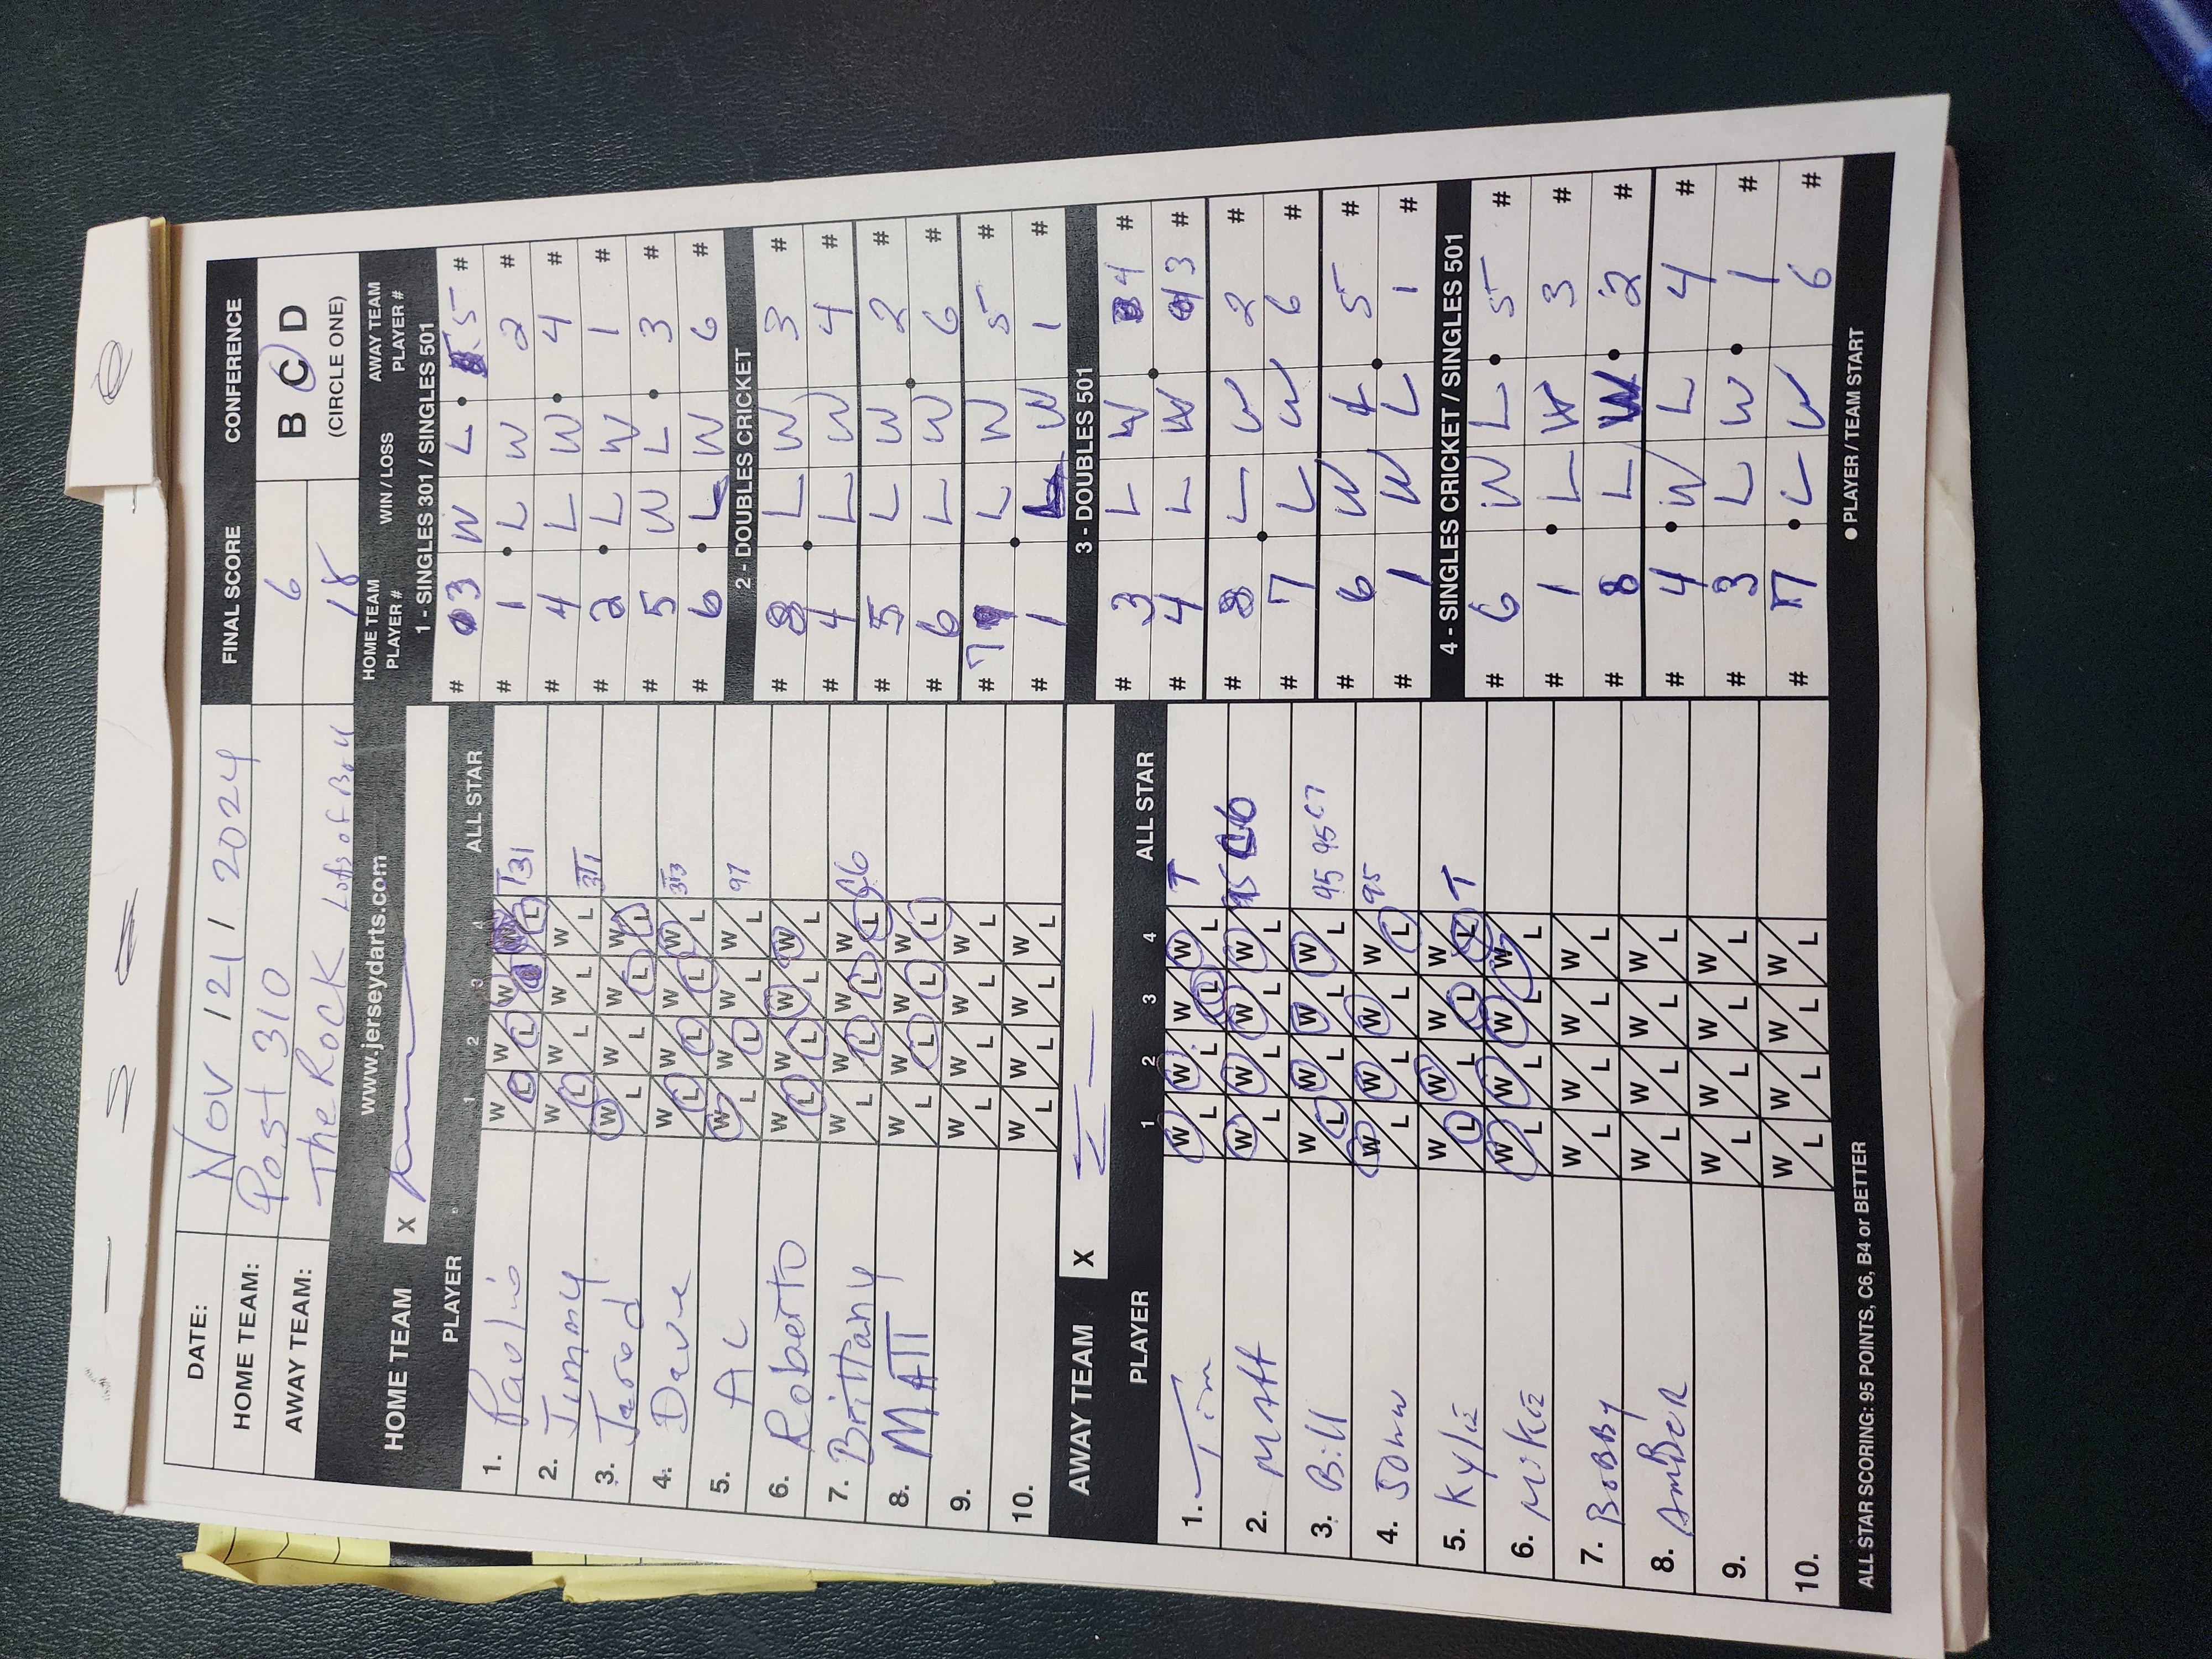 DATE: Nov 12 / 2024
HOME TEAM: Post 310
AWAY TEAM: The Rock Lots of Bull
FINAL SCORE
6
18
CONFERENCE
B C D
(CIRCLE ONE)
HOME TEAM
www.jerseydarts.com
X
PLAYER 1 2 3 4 ALL STAR
1. Paulie W L W L W L W L T31
2. Jimmy W L W L W L W L
3. Jared W L W L W L W L 3T1
4. Dave W L W L W L W L 3T3
5. AL W L W L W L W L 97
6. Roberto W L W L W L W L
7. Brittany W L W L W L W L C6
8. MATT W L W L W L W L
9. W L W L W L W L
10. W L W L W L W L
AWAY TEAM X
PLAYER 1 2 3 4 ALL STAR
1. Tim W L W L W L W L T
2. Matt W L W L W L W L 95 C6
3. Bill W L W L W L W L 95 95 C7
4. John W L W L W L W L 95
5. Kylie W L W L W L W L T
6. Mike W L W L W L W L
7. BoBBy W L W L W L W L
8. AmBeR W L W L W L W L
9. W L W L W L W L
10. W L W L W L W L
ALL STAR SCORING: 95 POINTS, C6, B4 or BETTER
HOME TEAM PLAYER # WIN / LOSS AWAY TEAM PLAYER #
1 - SINGLES 301 / SINGLES 501
# 3 W L 5 #
# 1 L W 2 #
# 4 L W 4 #
# 2 L W 1 #
# 5 W L 3 #
# 6 L W 6 #
2 - DOUBLES CRICKET
# 8 L W 3 #
# 4 L W 4 #
# 5 L W 2 #
# 6 L W 6 #
# 7 L W 5 #
# 1 L W 1 #
3 - DOUBLES 501
# 3 L W 4 #
# 4 L W 3 #
# 8 L W 2 #
# 7 L W 6 #
# 6 W L 5 #
# 1 W L 1 #
4 - SINGLES CRICKET / SINGLES 501
# 6 W L 5 #
# 1 L W 3 #
# 8 L W 2 #
# 4 W L 4 #
# 3 L W 1 #
# 7 L W 6 #
● PLAYER / TEAM START